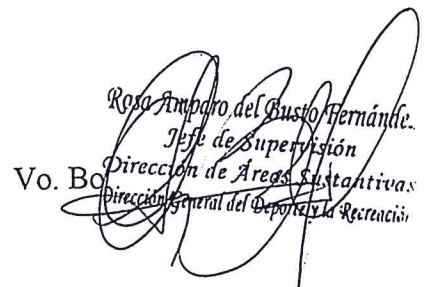 Rosa Amparo del Busto Fernánde
Jefe de Supervisión
Vo. Bo Dirección de Áreas Sustantivas
Dirección General del Deporte y la Recreación